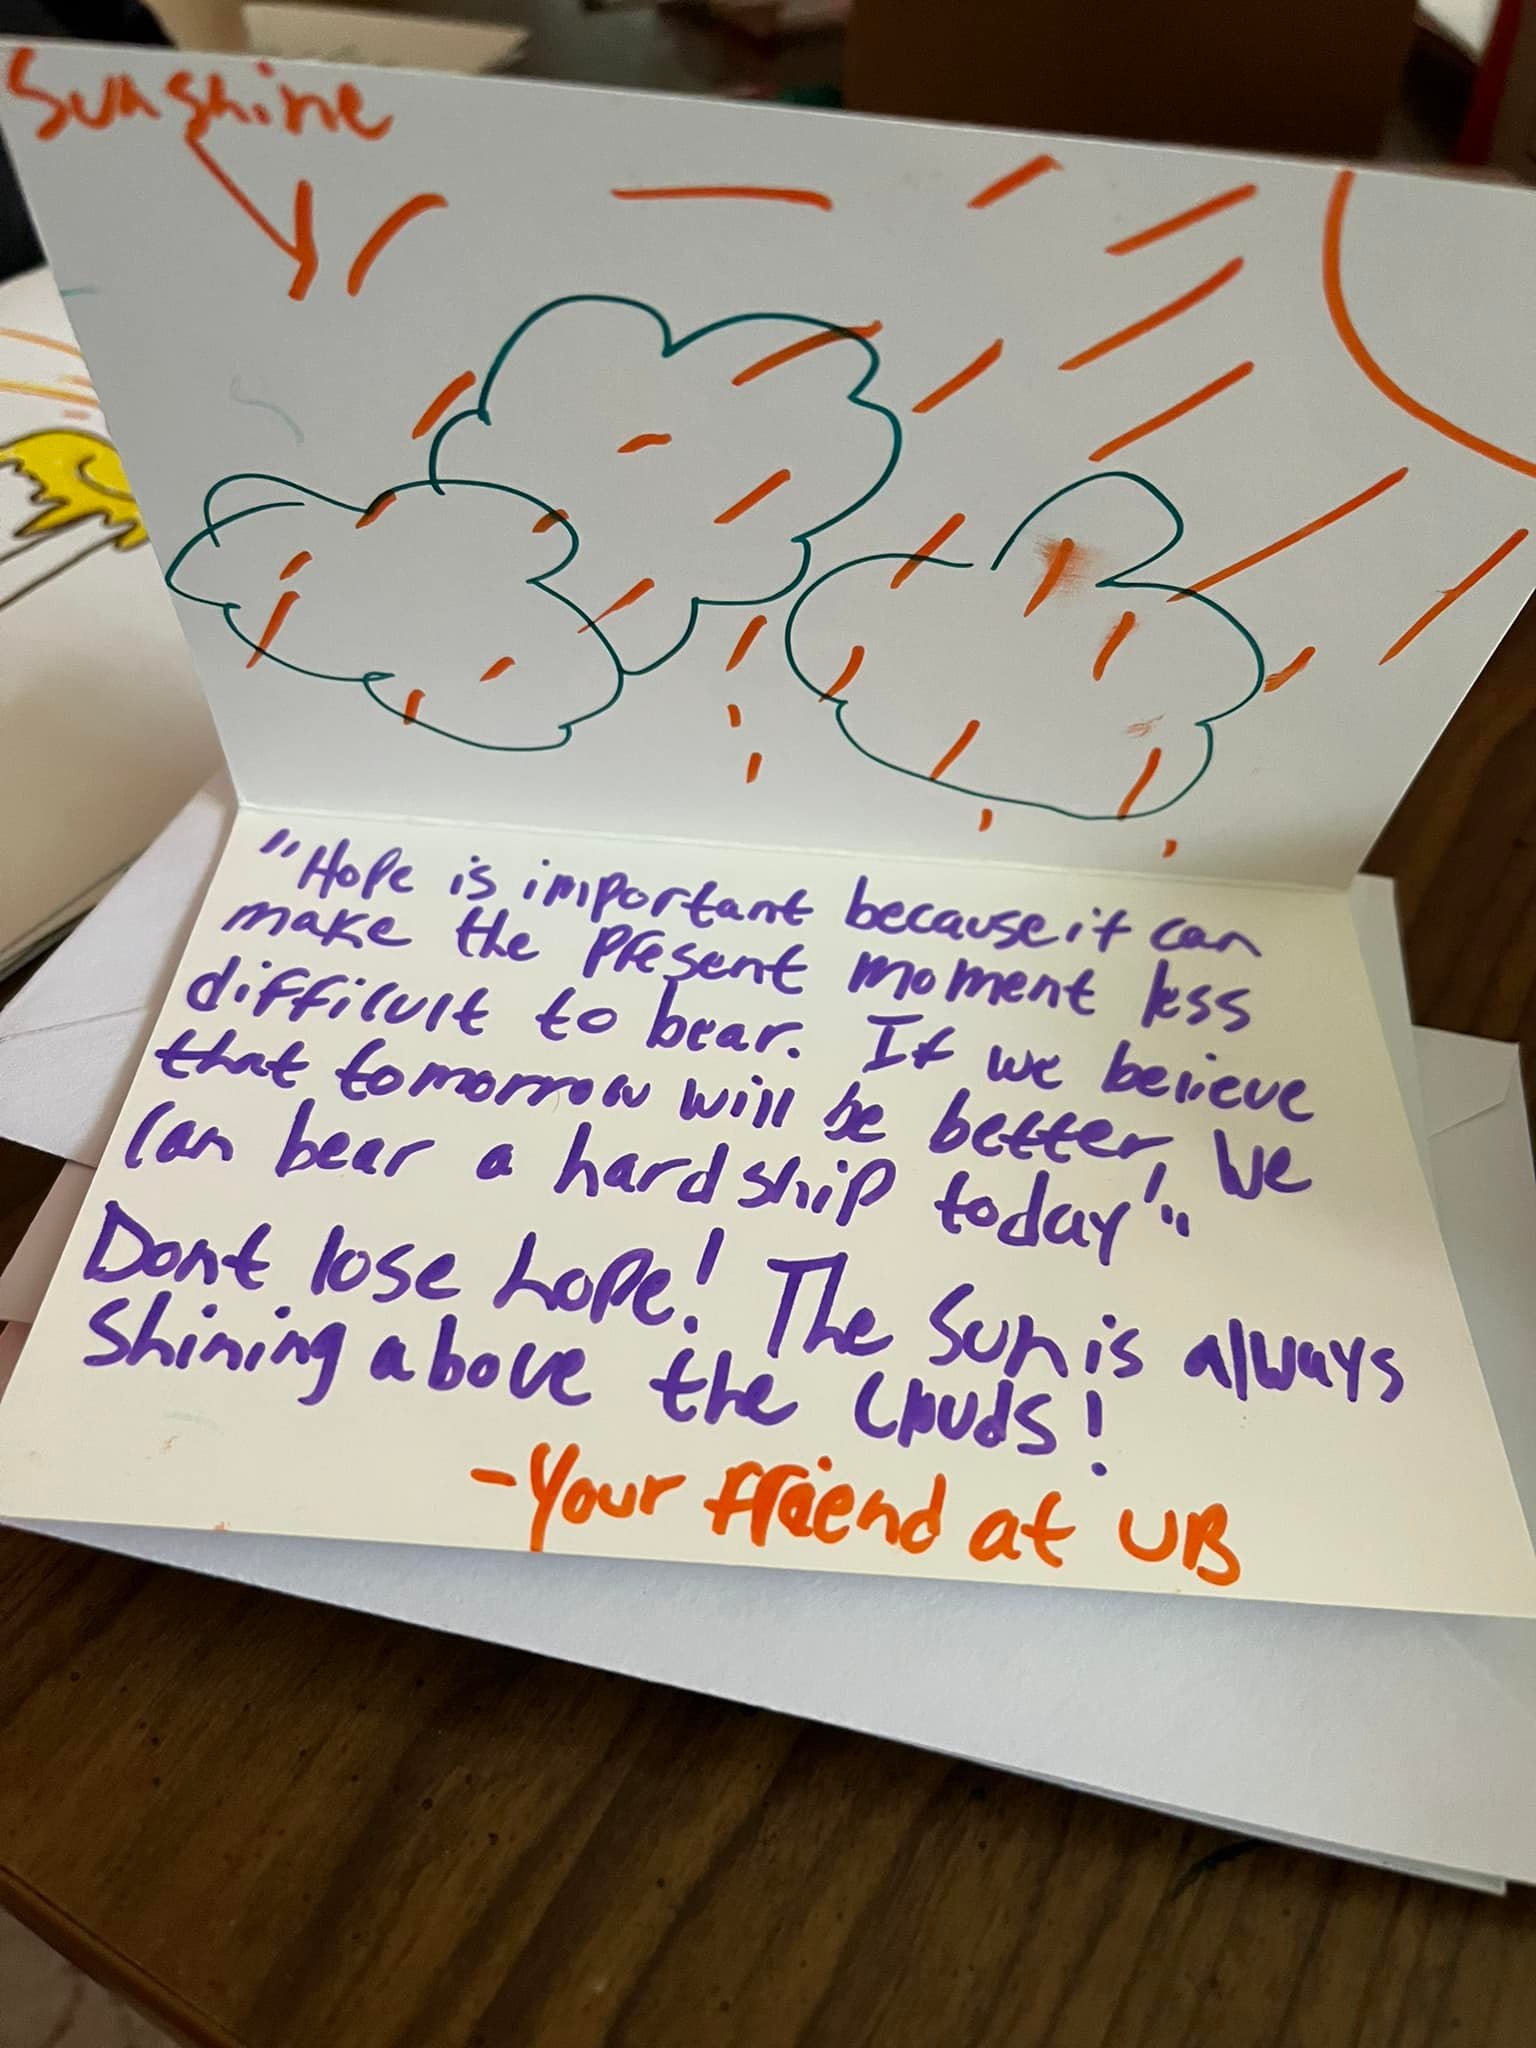 Sunshine
"Hope is important because it can
make the present moment less
difficult to bear. If we believe
that tomorrow will be better, we
can bear a hardship today!"
Dont lose hope! The sun is always
shining above the clouds!
-Your friend at UB